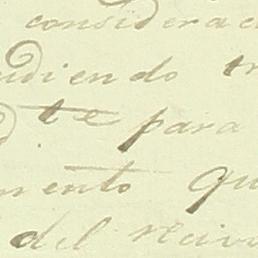 consideraci
udiendo tr
te para
mento qu
del reciv